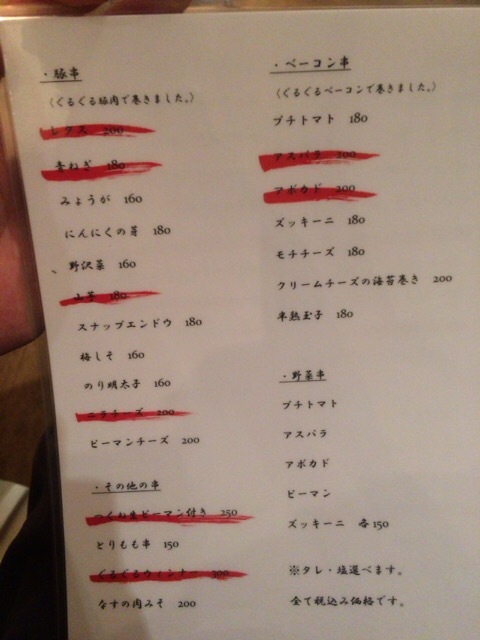 ・豚串
(ぐるぐる豚肉で巻きました。)
レタス 200
青ねぎ 180
みょうが 160
にんにくの芽 180
野沢菜 160
山芋 180
スナップエンドウ 180
梅しそ 160
のり明太子 160
ニラチーズ 200
ピーマンチーズ 200
・その他の串
つくね生ピーマン付き 250
とりもも串 150
ぐるぐるウィンナー 300
なすの肉みそ 200
・ベーコン串
(ぐるぐるベーコンで巻きました。)
プチトマト 180
アスパラ 200
アボカド 200
ズッキーニ 180
モチチーズ 180
クリームチーズの海苔巻き 200
半熟玉子 180
・野菜串
プチトマト
アスパラ
アボカド
ピーマン
ズッキーニ 各150
※タレ・塩選べます。
全て税込み価格です。